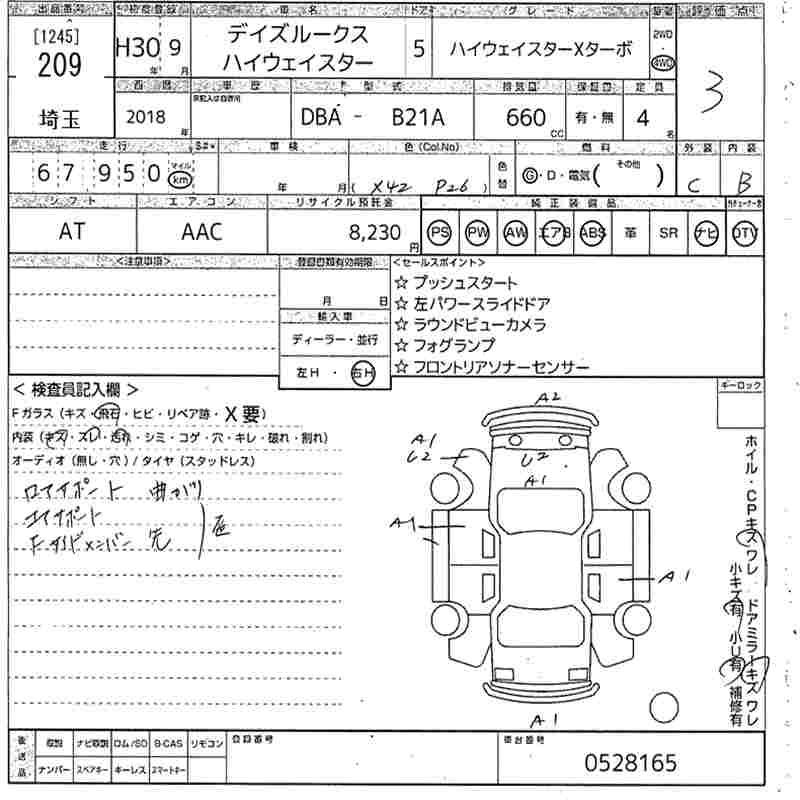 出品番号 車検登録 車名 ドア グレード 駆動 評価点
[1245] 209 埼玉
H30年 9月 デイズルークス ハイウェイスター 5 ハイウェイスターXターボ 2WD 4WD 3
西暦 車歴 型式 排気量 保証書 定員
2018年 DBA - B21A 660cc 有・無 4名
走行 車検 色(Col.No) 色替 燃料 外装 内装
67950 マイル km 年 月 (X42 P26) G・D・電気( その他 ) C B
シフト エアコン リサイクル預託金 純正装備品
AT AAC 8,230円 PS PW AW エアB ABS 革 SR ナビ DTV
<注意事項> 登録書類有効期限 <セールスポイント>
月 日
輸入車
ディーラー・並行
左H・右H
☆ プッシュスタート
☆ 左パワースライドドア
☆ ラウンドビューカメラ
☆ フォグランプ
☆ フロントリアソナーセンサー
< 検査員記入欄 >
Fガラス(キズ・飛石・ヒビ・リペア跡・X要)
内装(キズ・スレ・汚れ・シミ・コゲ・穴・キレ・破れ・割れ)
オーディオ(無し・穴)/タイヤ(スタッドレス)
曲がり
先
キーロック
A2
A1
U2
U2
A1
A1
A1
A1
ホイル・CPキズワレ ドアミラーキズワレ
小キズ有 小U有 補修有
後送品 取説 ナビ取説 ロム/SD B-CAS リモコン 登録番号 車台番号
ナンバー スペアキー キーレス スマートキー 0528165